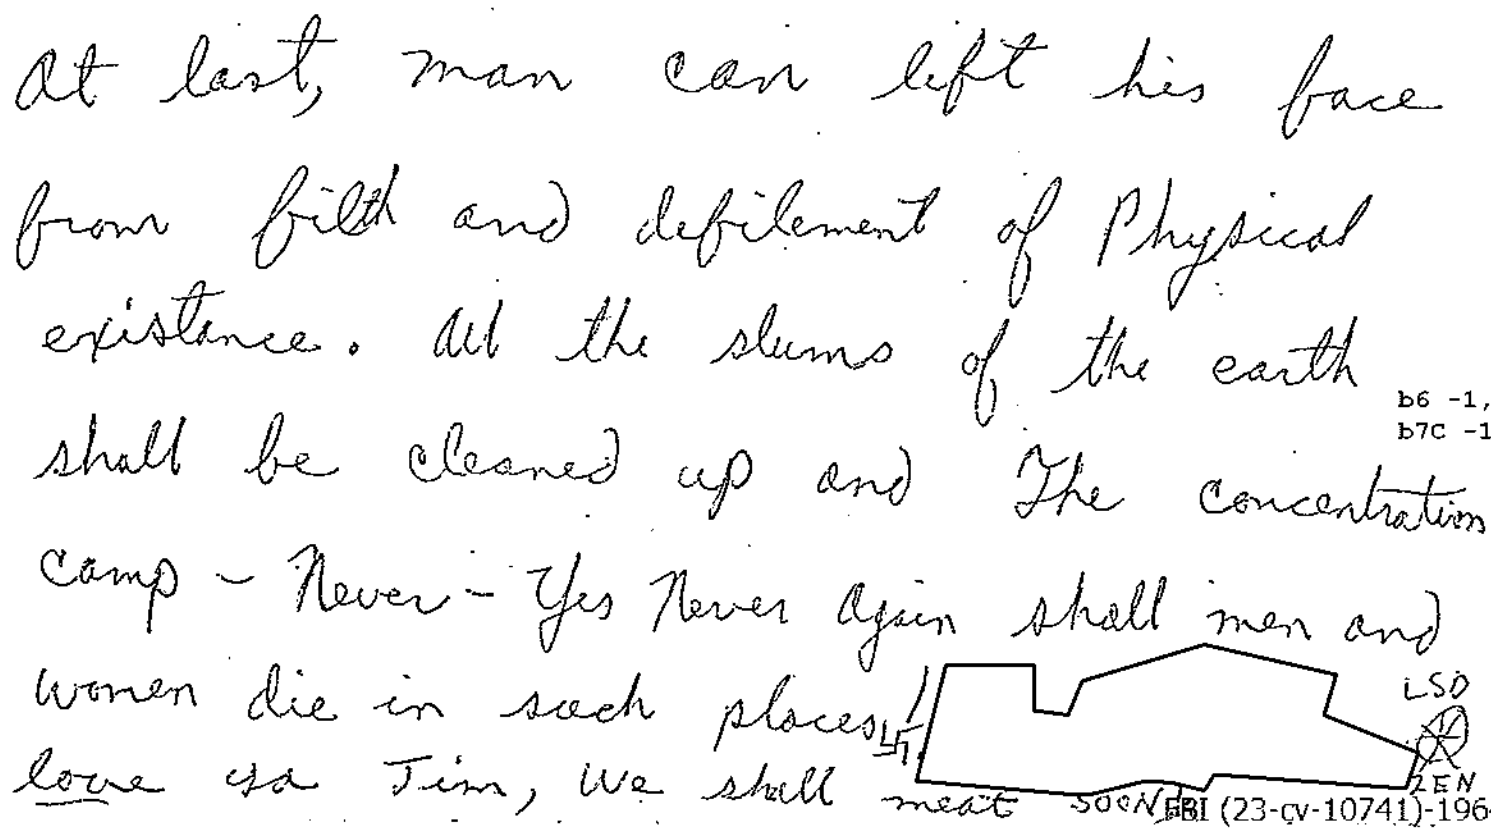 At last, man can lift his face
from filth and defilement of Physical
existance. All the slums of the earth
b6 -1,
b7C -1
shall be cleaned up and The concentration
camp - Never - Yes Never Again shall men and
women die in such places
LSD
love ya Jim, We shall meat SOON
ZEN
FBI (23-cv-10741)-196